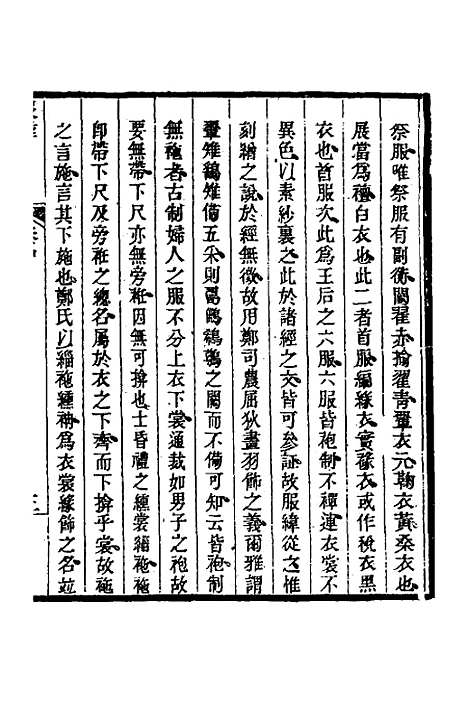 祭服唯祭服有副衡闕翟赤揄翟青翬衣元鞠衣黃桑衣也
展當爲襢白衣也此二者首服編緣衣實褖衣或作稅衣黑
衣也首服次此爲王后之六服六服皆袍制不襌連衣裳不
異色以素紗裏之此於諸經之文皆可參証故服緯從之惟
刻繒之說於經無徵故用鄭司農屈狄畫羽飾之義爾雅謂
翬雉鷂雉備五采則鷊鷂鶨之闕而不備可知云皆袍制
無袘者古制婦人之服不分上衣下裳通裁如男子之袍制
要無帶下尺亦無旁衽因無可揜也士昏禮之纁裳緇袘袘
卽帶下尺及旁衽之總名屬於衣之下齊而下揜乎裳故袘
之言施言其下施也鄭氏以緇袘纁袡爲衣裳緣飾之名竝